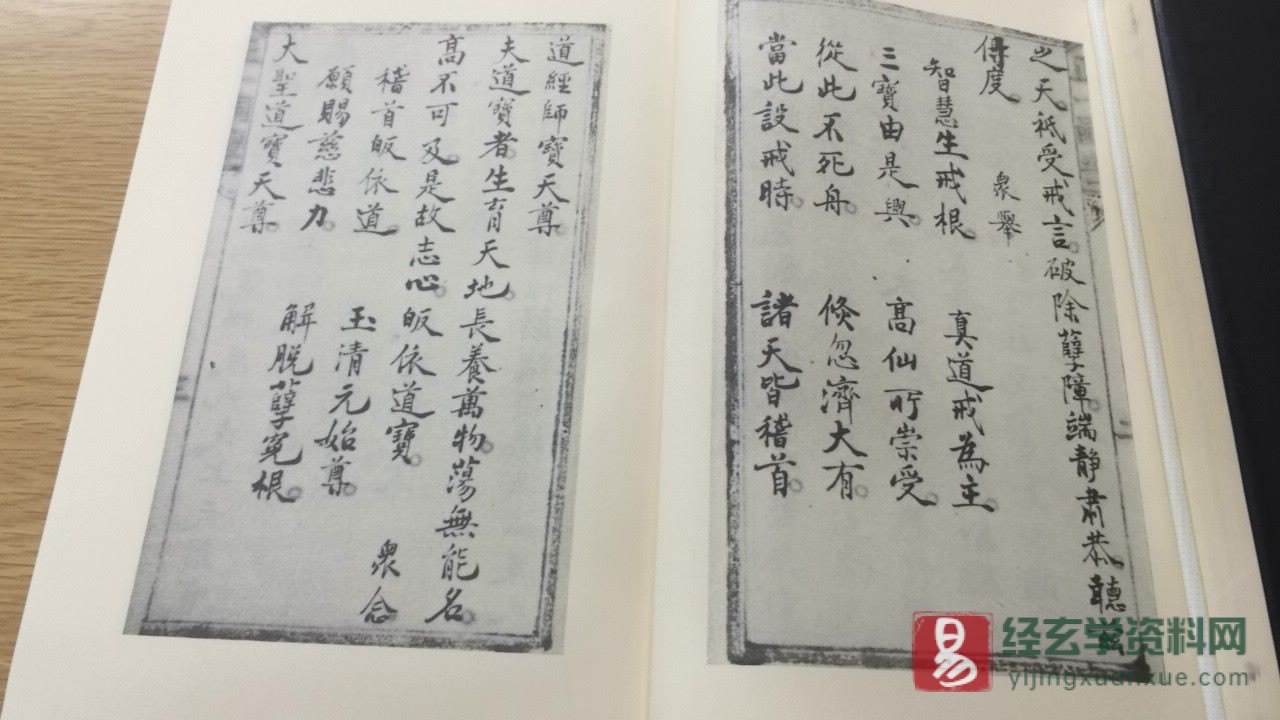 之天祇受戒言破除孽障端静肅恭聽
得度
衆舉
智慧生戒根 真道戒為主
三寶由是興 高仙所崇受
從此不死舟 倐忽濟大有
當此設戒時 諸天皆稽首
道經師寶天尊
夫道寶者生育天地長養萬物蕩無能名
高不可及是故志心皈依道寶 衆念
稽首皈依道 玉清元始尊
願賜慈悲力 解脱孽寃根
大聖道寶天尊
易
经玄学资料网
yijingxuanxue.com